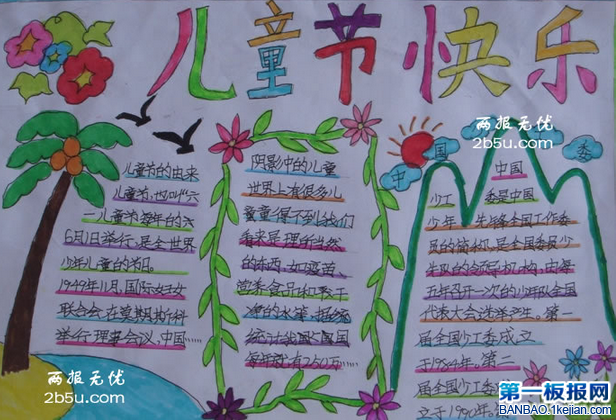 儿童节快乐
两报无优
2b5u.com
儿童节的由来
儿童节,也叫"六
一儿童节,每年的六
6月1日举行,是全世界
少年儿童的节日。
1949年11月,国际妇女
联合会在莫斯科
举行理事会议,中国……
阴影中的儿童
世界上有很多儿
童得不到我们
看来是理所当然
的东西,如疫苗、
营养食品和干
净的水等,据统
统计
每年就有250万……
中国 委
中国
少工 委是中国
少年 先锋全国工作委
员的简称,是全国委员少
年队的领导机构,由每
五年召开一次的少年队全国
代表大会选举产生。第一
届全国少工委成立
于1984年。第二
届全国少工委
立于1990年。
两报无优
2b5u.com
两报无优
2b5u.com
第一板报网
BANBAO.1kejian.com